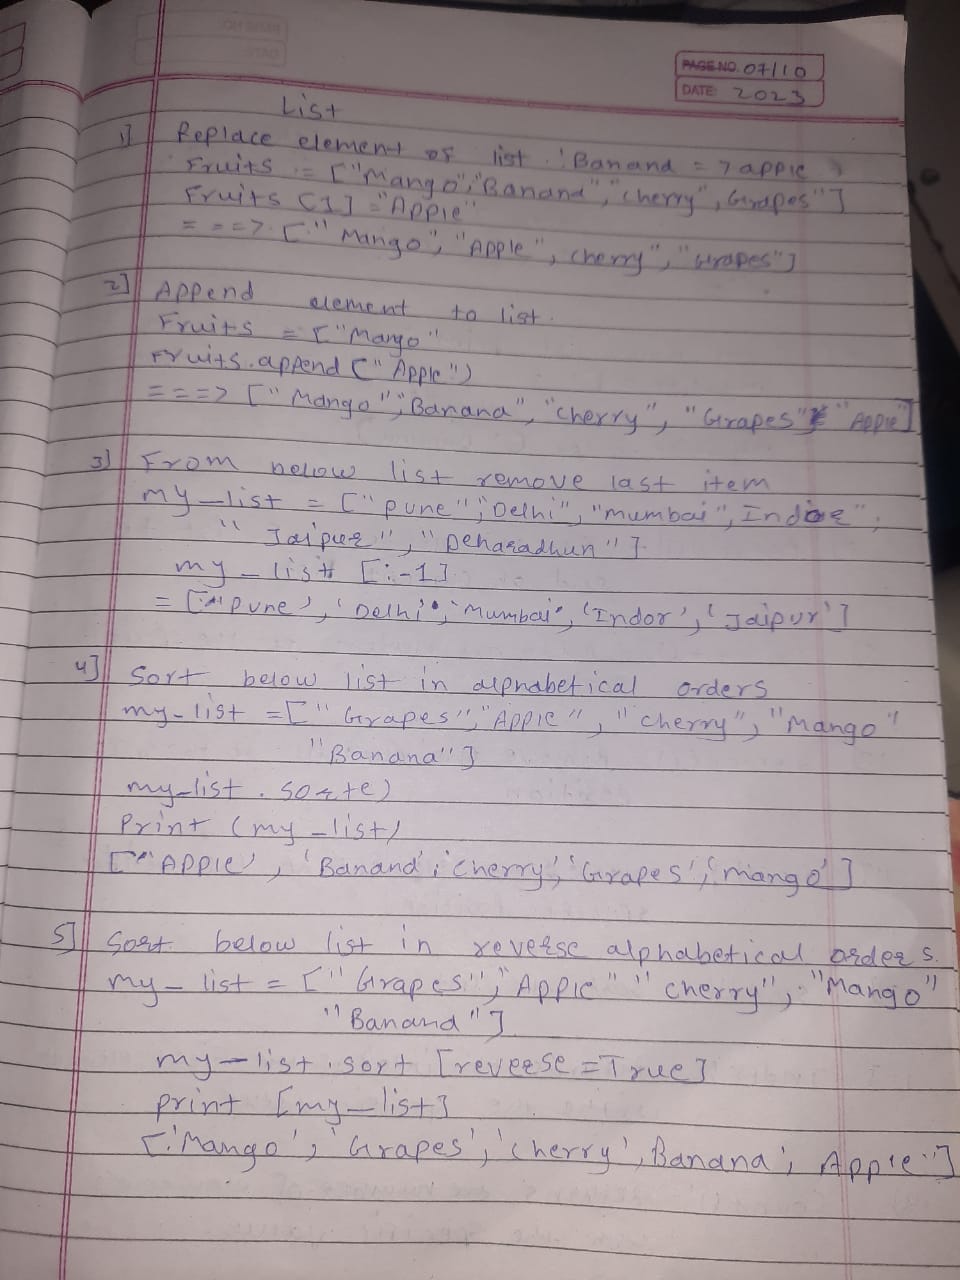 PAGE NO. 07/10
DATE: 2023
List
1] Replace element of list 'Banand = 7 apple
Fruits = ["Mango","Banand", "cherry", Grapes"]
Fruits [1] = "Apple"
= = => ["Mango", "Apple", cherry", "Grapes"]
2] Append element to list.
Fruits = ["Mango"
Fruits.append ("Apple")
===> ["Mango","Banana", "cherry", "Grapes" "Apple"]
3] From below list remove last item
my_list = ["pune","Delhi", "mumbai", Indore",
"Jaipur", "Deharadhun"].
my_list [:-1]
= ['pune', 'Delhi', 'Mumbai', 'Indor', 'Jaipur']
4] Sort below list in alphabetical orders
my_list = ["Grapes","Apple", "cherry", "Mango"
"Banana"]
my_list.sorte)
Print (my_list)
["Apple', 'Banand', 'cherry', 'Grapes', 'mango']
5] Sort below list in reverse alphabetical orders.
my_list = ["Grapes", "Apple" "cherry", "Mango"
"Banand"]
my_list.sort [reverse=True]
print [my_list]
['Mango', 'Grapes', 'cherry', Banana', Apple"]